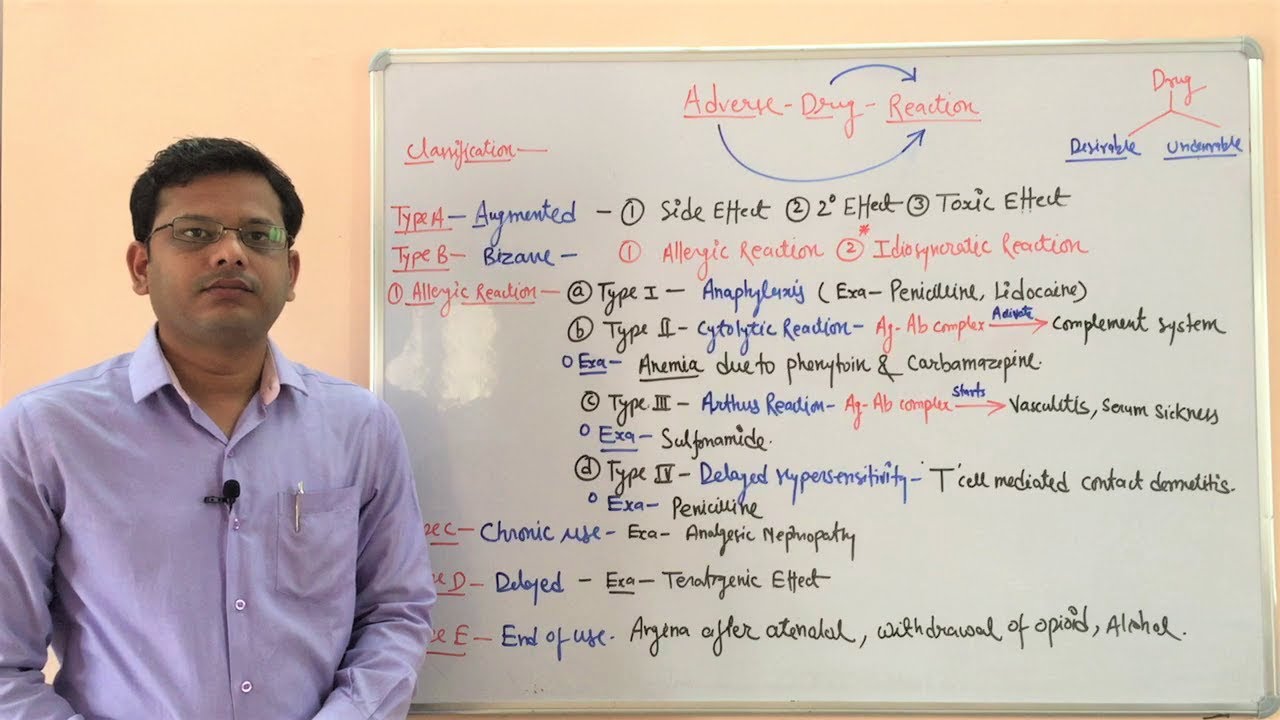 Adverse - Drug - Reaction
Drug
Desirable Undesirable
Classification —
Type A — Augmented — ① Side Effect ② 2° Effect ③ Toxic Effect
Type B — Bizarre — ① Allergic Reaction ②* Idiosyncratic Reaction
① Allergic Reaction — ⓐ Type I — Anaphylaxis (Exa - Penicilline, Lidocaine)
ⓑ Type II - Cytolytic Reaction - Ag-Ab complex Activate → Complement system
Exa - Anemia due to phenytoin & Carbamazepine.
ⓒ Type III - Arthus Reaction - Ag-Ab complex starts → Vasculitis, Serum sickness
Exa - Sulfonamide.
ⓓ Type IV - Delayed Hypersensitivity - 'T' cell mediated contact dermetitis.
Exa - Penicilline
pe C - Chronic use - Exa - Analgesic Nephropathy
e D - Delayed - Exa - Teratrgenic Effect
e E - End of use. Angena after atenalal, withdrawal of opioid, Alcohol.